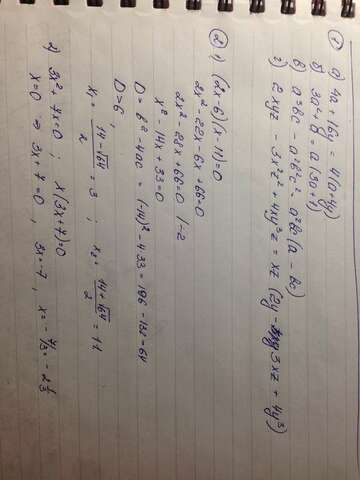 ① а) 4a + 16y = 4(a+4y)
б) 3a² + a = a(3a+1)
в) a³bc - a²b²c² = a²bc(a - bc)
г) 2xyz - 3x²z² + 4xy³z = xz(2y - 3xz + 4y³)
② 1) (2x-6)(x-11)=0
2x² - 22x - 6x + 66 = 0
2x² - 28x + 66 = 0 | ÷2
x² - 14x + 33 = 0
D = b² - 4ac = (-14)² - 4·33 = 196 - 132 = 64
D > 0,
x₁ = (14-√64)/2 = 3 ; x₂ = (14+√64)/2 = 11
2) 3x² + 7x = 0 ; x(3x+7)=0
x=0 => 3x+7=0, 3x=-7, x= -7/3 = -2 1/3